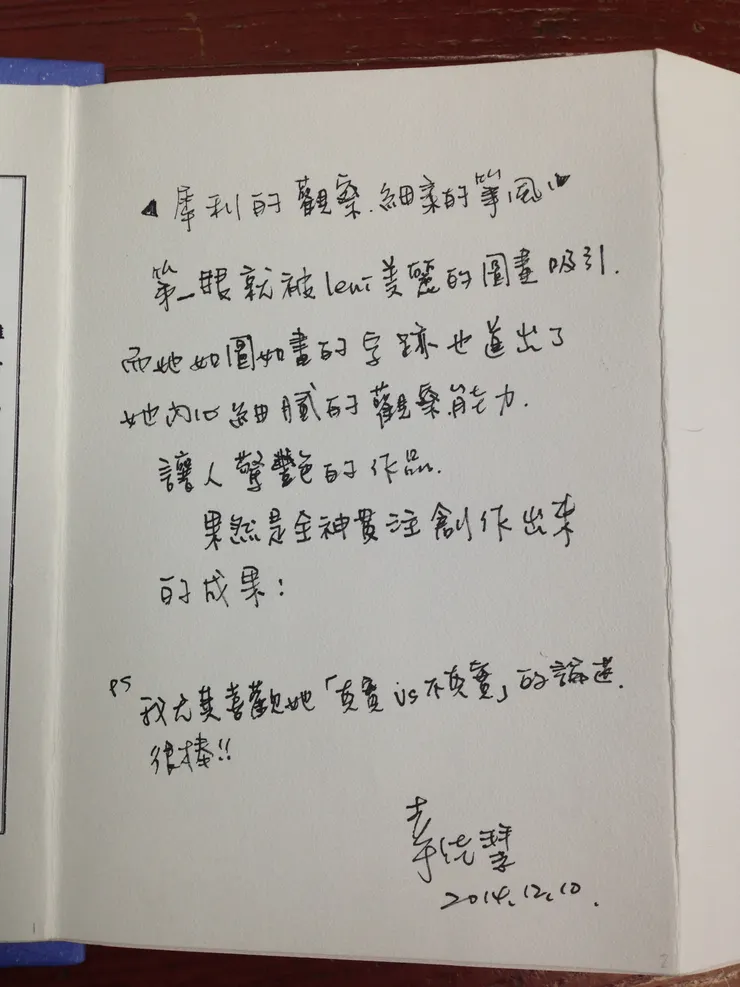 犀利的觀察.細柔的筆風
第一眼就被leni美麗的圖畫吸引.
而她如圖如畫的字跡也道出了
她內心細膩的觀察能力.
讓人驚艷的作品.
果然是全神貫注創作出來
的成果:
PS
我尤其喜歡她「真實vs不真實」的論述.
很棒!!
2014.12.10.
1
2